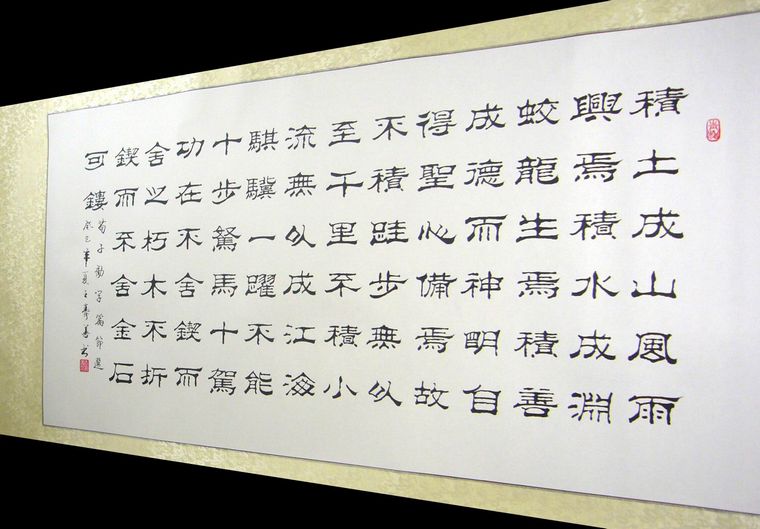 積土成山風雨
興焉積水成淵
蛟龍生焉積善
成德而神明自
得聖心備焉故
不積跬步無以
至千里不積小
流無以成江海
騏驥一躍不能
十步駑馬十駕
功在不舍鍥而
舍之朽木不折
鍥而不舍金石
可鏤
荀子勸學篇節選
癸巳年夏王壽善书